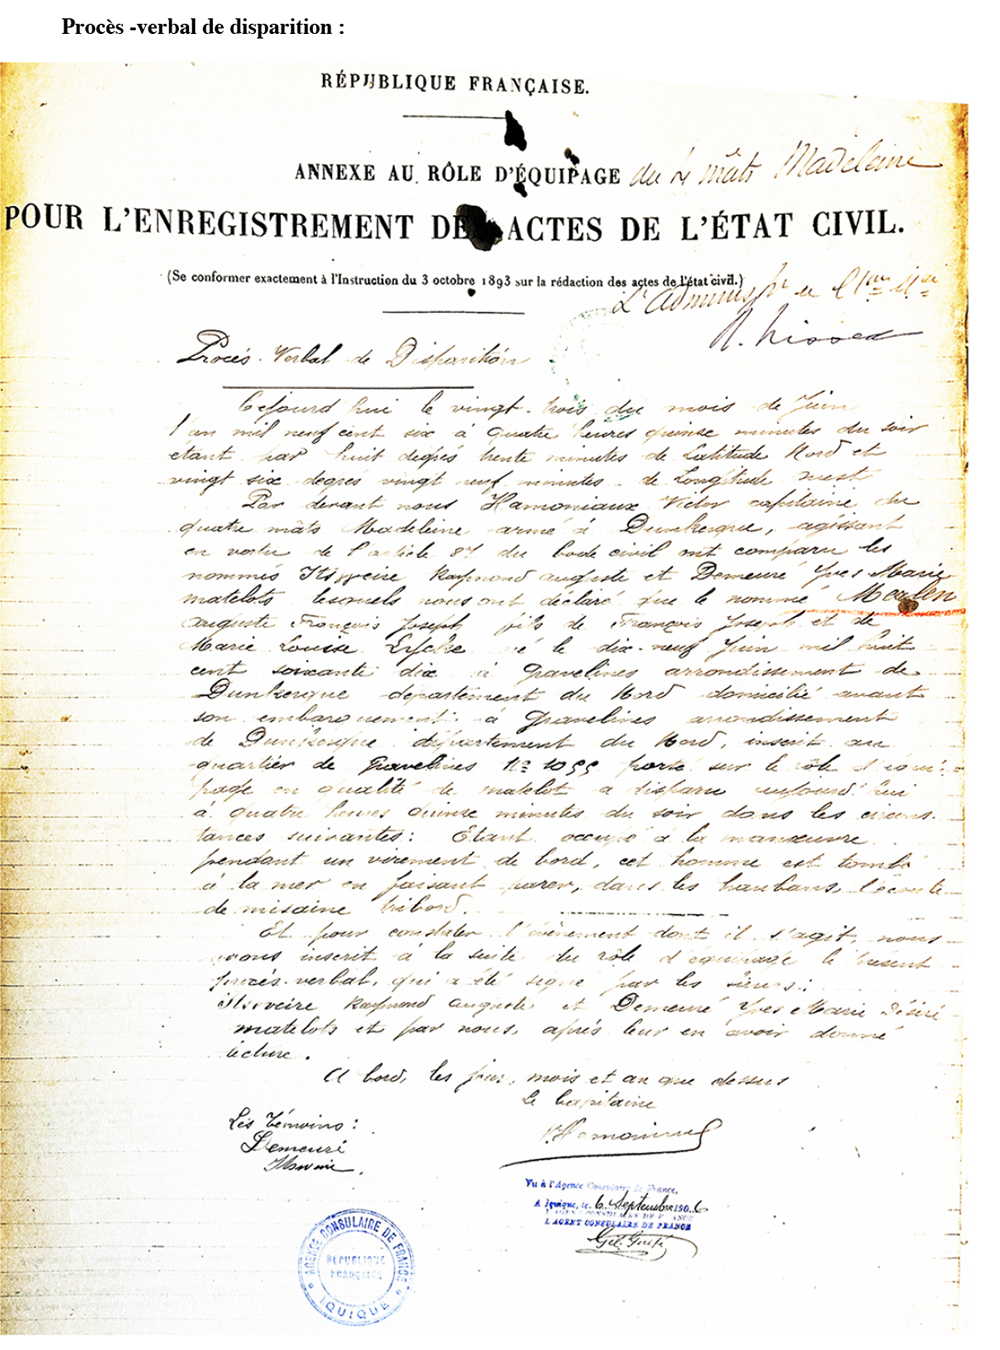 Procès -verbal de disparition :
RÉPUBLIQUE FRANÇAISE.
ANNEXE AU RÔLE D'ÉQUIPAGE du 4 mâts Madeleine
POUR L'ENREGISTREMENT DES ACTES DE L'ÉTAT CIVIL.
(Se conformer exactement à l'Instruction du 3 octobre 1893 sur la rédaction des actes de l'état civil.)
L'Adminis
Procès-Verbal de Disparition
Cejourd'hui le vingt-trois du mois de Juin
l'an mil neuf cent six à quatre heures quinze minutes du soir
etant par huit degrés trente minutes de Latitude Nord et
vingt six degres vingt neuf minutes de Longitude ouest
Par devant nous Hamoniaux Victor capitaine du
quatre mâts Madeleine armé à Dunkerque, agissant
en vertu de l'article 87 du Code civil ont comparu les
nommés Raymond auguste et Demeuré Yves Marie
matelots lesquels nous ont déclaré que le nommé Merlen
auguste François Joseph fils de François Joseph et de
Marie Louise né le dix-neuf Juin mil huit
cent soixante dix à Gravelines arrondissement de
Dunkerque departement du Nord domicilié avant
son embarquement à Gravelines arrondissement
de Dunkerque département du Nord, inscrit au
quartier de Gravelines N° 1099 porté sur le rôle d'équi-
page en qualité de matelot a disparu aujourd'hui
à quatre heures quinze minutes du soir dans les circons
tances suivantes: Etant occupé à la manœuvre
pendant un virement de bord, cet homme est tombé
à la mer en faisant parer, dans les haubans, l'écoute
de misaine tribord.
Et pour constater l'évènement dont il s'agit, nous
avons inscrit à la suite du rôle d'equipage le présent
procès-verbal, qui a été signé par les sieurs:
Raymond Auguste et Demeuré Yves Marie Désiré
matelots et par nous, après leur en avoir donné
lecture.
A bord, les jour, mois et an que dessus
Le Capitaine
Les Témoins:
Demeuré
Vu à l'Agence Consulaire de France,
A Iquique, le 6 Septembre 1906
L'AGENT CONSULAIRE DE FRANCE
AGENCE CONSULAIRE DE FRANCE
RÉPUBLIQUE
FRANÇAISE
IQUIQUE